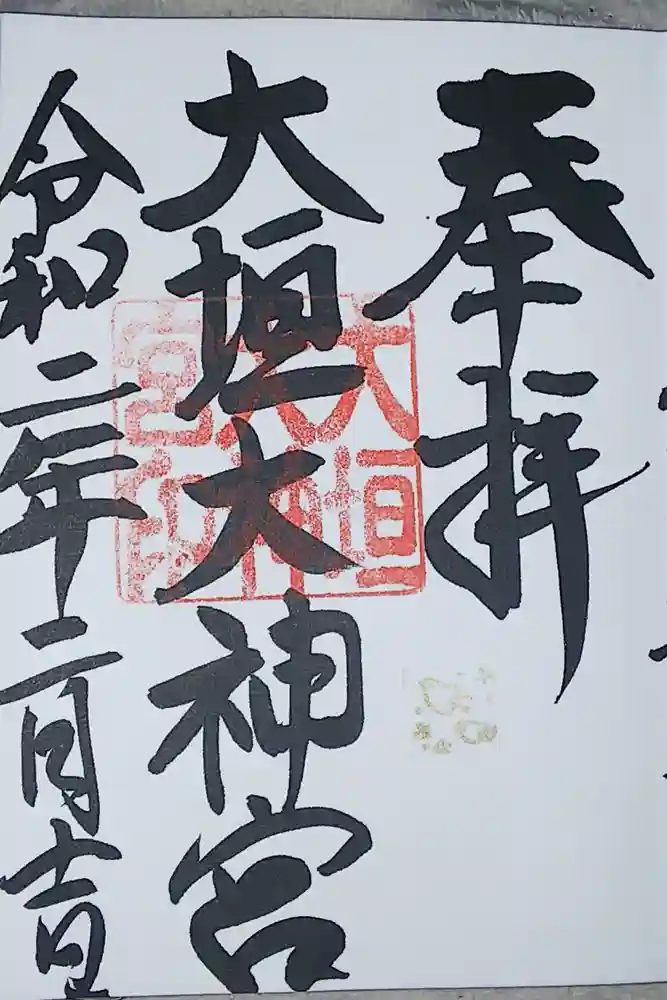 奉拝
大垣大神宮
令和二年二月吉日
大垣
大神
宮印